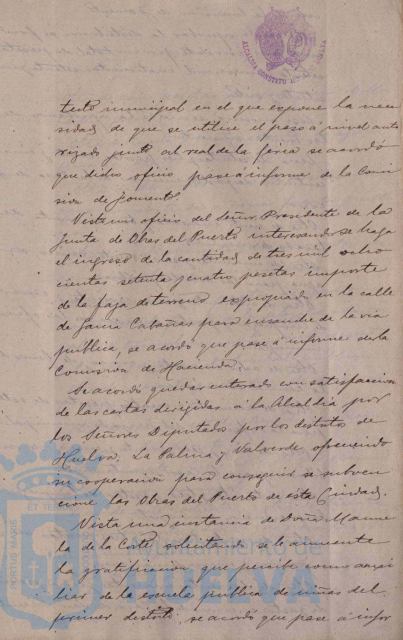 ALCALDIA CONSTITUCIONAL
tecto municipal en el que expone la nece
sidad de que se utilice el paso á nivel auto
rizado junto al real de la feria se acordó
que dicho oficio pase á informe de la Comi
sion de Fomento
Visto un oficio del Señor Presidente de la
Junta de Obras del Puerto interesando se haga
el ingreso de la cantidad de tres mil ocho
cientas setenta y cuatro pesetas importe
de la faja de terreno expropiada en la calle
de Garcia Cabañas para ensanche de la via
publica, se acordó que pase á informe de la
Comision de Hacienda.
Se acordó quedar enterado con satisfaccion
de las cartas dirigidas á la Alcaldia por
los Señores Diputados por los distritos de
Huelva, La Palma y Valverde ofreciendo
su cooperacion para conseguir se subven
cione las Obras del Puerto de esta Ciudad.
Vista una instancia de Doña Manue
la de la Corte solicitando se le aumente
la gratificacion que percibe como auxi
liar de la escuela publica de niñas del
primer distrito se acordó que pase á infor
PORTUS MARIS ET TERRAE
Ayuntamiento de
HUELVA